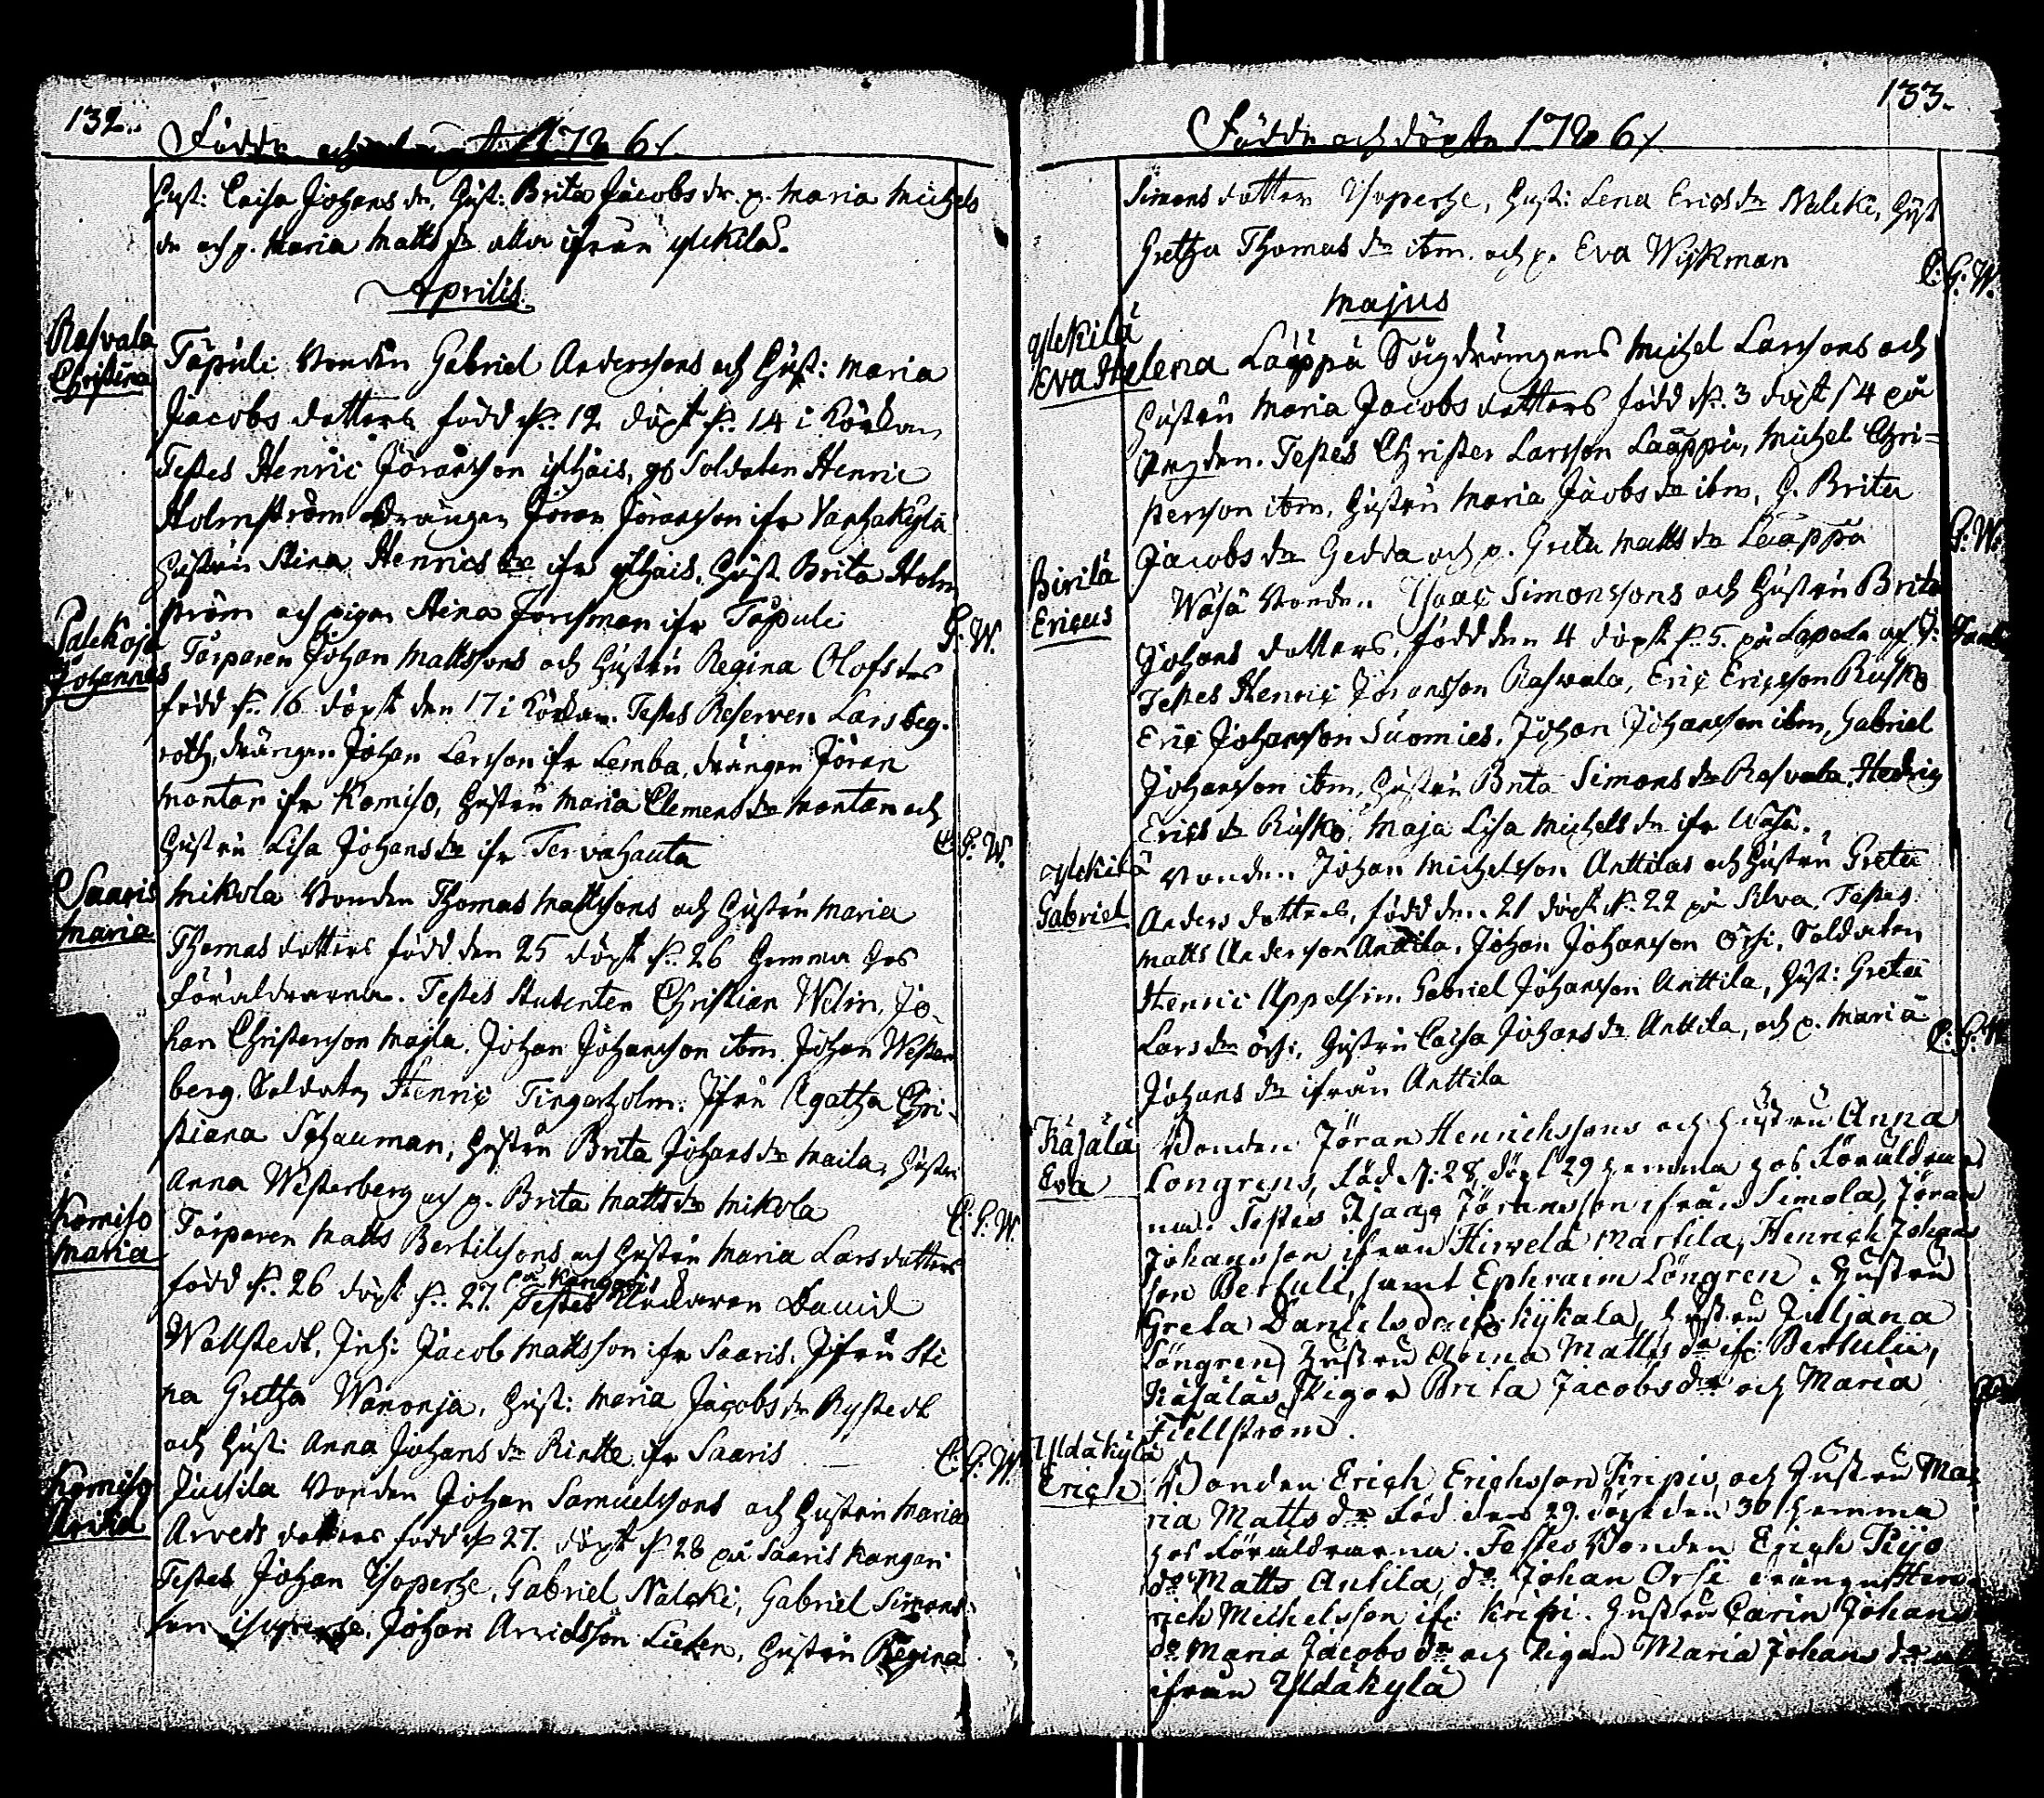 132.
Födde och döpte 1786/.
Hust: Caisa Johans dr, Hust: Brita Jacobs dr. p. Maria Michels
dr och p. Maria Matts dr alla ifrån ylekilä.
Aprilis.
Rasvala
Christina
Tåpuli Bonden Gabriel Anderssons och Hust: Maria
Jacobs dotters född d. 12 döpt d. 14 i Körkan
Testes Henric Jöransson ylhäis, gl Soldaten Henric
Holmström Drängen Jöran Jöransson ifr Vanhakylä
Hustru Stina Henrics dr ifr ylhäis, Hust Brita Holm
ström och pigan Stina Forssman ifr Tåpuli
G: W.
Palekoja
Johannes
Torparen Johan Mattssons och Hustru Regina Olofs drs
född d. 16 döpt den 17 i Körkan. Testes Reserven Lars Seg.
roth, drängen Johan Larsson ifr Lemba, drängen Jöran
Montan ifr Komiso, Hustru Maria Clemens dr Montan och
Hustru Lisa Johans dr ifr Tervahauta
C. G: W.
Saaris
Maria
Mikola Bonden Thomas Mattssons och Hustru Maria
Thomas dotters född den 25 döpt d. 26 hemma hos
föräldrarna. Testes Studenten Christian Welin, Jo-
han Christersson Maila. Johan Johansson ibm. Johan Wester
berg. Soldaten Henric Tingerholm. Jfru Agatha Chri-
stiana Schauman, Hustru Brita Johans dr Maila, Hustru
Anna Westerberg och p. Brita Matts dr Mikola
C: G: W.
Komiso
Maria
Torparen Matts Bertilssons och Hustru Maria Lars dotters
född d. 26 döpt d. 27. på Kangaris Testes Klockaren David
Wallstedt, Inh: Jacob Mattsson ifr Saaris. Jfru Sti
na Gretha Wanonja, Hust: Maria Jacobs dr Rystedt
och Hust: Anna Johans dr Rintte ifr Saaris
C: G: W.
Komiso
Jussila Bonden Johan Samuelssons och Hustru Maria
Arveds dotters född d 27. döpt d. 28 på Saaris Kangari
Testes Johan Isoperhe, Gabriel Nalcki, Gabriel Simons-
son Isoperhe, Johan Arvidsson Lieken, Hustru Regina
133.
Födde och döpte 1786/.
Simons dotter Isoperhe, Hust: Lena Erics dr Nalcki, Hust
Gretha Thomas dr ibm. och p. Eva Wijkman
C: G: W.
Majus
ylekilä
Eva Helena
Laåppå Sågdrängens Michel Larssons och
Hustru Maria Jacobs dotters född d. 3 döpt d 4 på
Testes Christer Larsson Laåppå, Michel Chri=
stersson ibm, Hustru Maria Jacobs dr ibm, H. Brita
Jacobs dr Gedda och p. Greta Matts dr Laåppå
G: W.
Birilä
Ericus
Wäsä Bonden Isaac Simonssons och Hustru Brita
Johans dotters, född den 4 döpt d. 5. på Lapola af J:
Testes Henric Jöransson Rasvala, Eric Ericsson Rusko
Eric Johansson Suomies, Johan Johansson ibm, Gabriel
Johansson ibm, Hustru Brita Simons dr Rasvala, Hedvig
Erics dr Rusko, Maja Lisa Michels dr ifr Wäsä.
ylekilä
Gabriel
Bonden Johan Michelsson Anttilas och Hustru Greta
Anders dotters, född den 21 döpt d. 22 på Silva. Testes
Matts Andersson Anttila, Johan Johansson Orsi, Soldaten
Henric Appelsin, Gabriel Johansson Anttila, Hust: Greta
Lars dr Orsi, Hustru Caisa Johans dr Anttila, och p. Maria
Johans dr ifrån Anttila
C: G: W
Käsälä
Eva
Bonden Jöran Henrichssons och Hustru Anna
Löngrens, Född d: 28, döpt 29 hemma hos Föräldrar
na. Testes Isaac Jöransson ifrån Simola, Jöran
Johansson ifrån Hirvelä Marsila, Henrich Johans
son Bertuli, samt Ephraim Löngren, Hustru
Greta Daniels dr ifr: Kykala, Hustru Juliana
Löngren, Hustru Anna Matts dr ifr: Bertulii,
Käsäläs Pigor Brita Jacobs dr och Maria
Fiellström.
Yldäkylä
Erich
Bonden Erich Erichsson Kripis, och Hustru Ma-
ria Matts dr Född den 29. döpt den 30 hemma
hos Föräldrarna. Testes Bonden Erich Pijo
do Matts Antila, do Johan Orsi drängen Hen-
rich Michelsson ifr: Kripi. Hustru Carin Johans
dr Maria Jacobs dr och Pigan Maria Johans dr alla
ifrån Yldäkylä